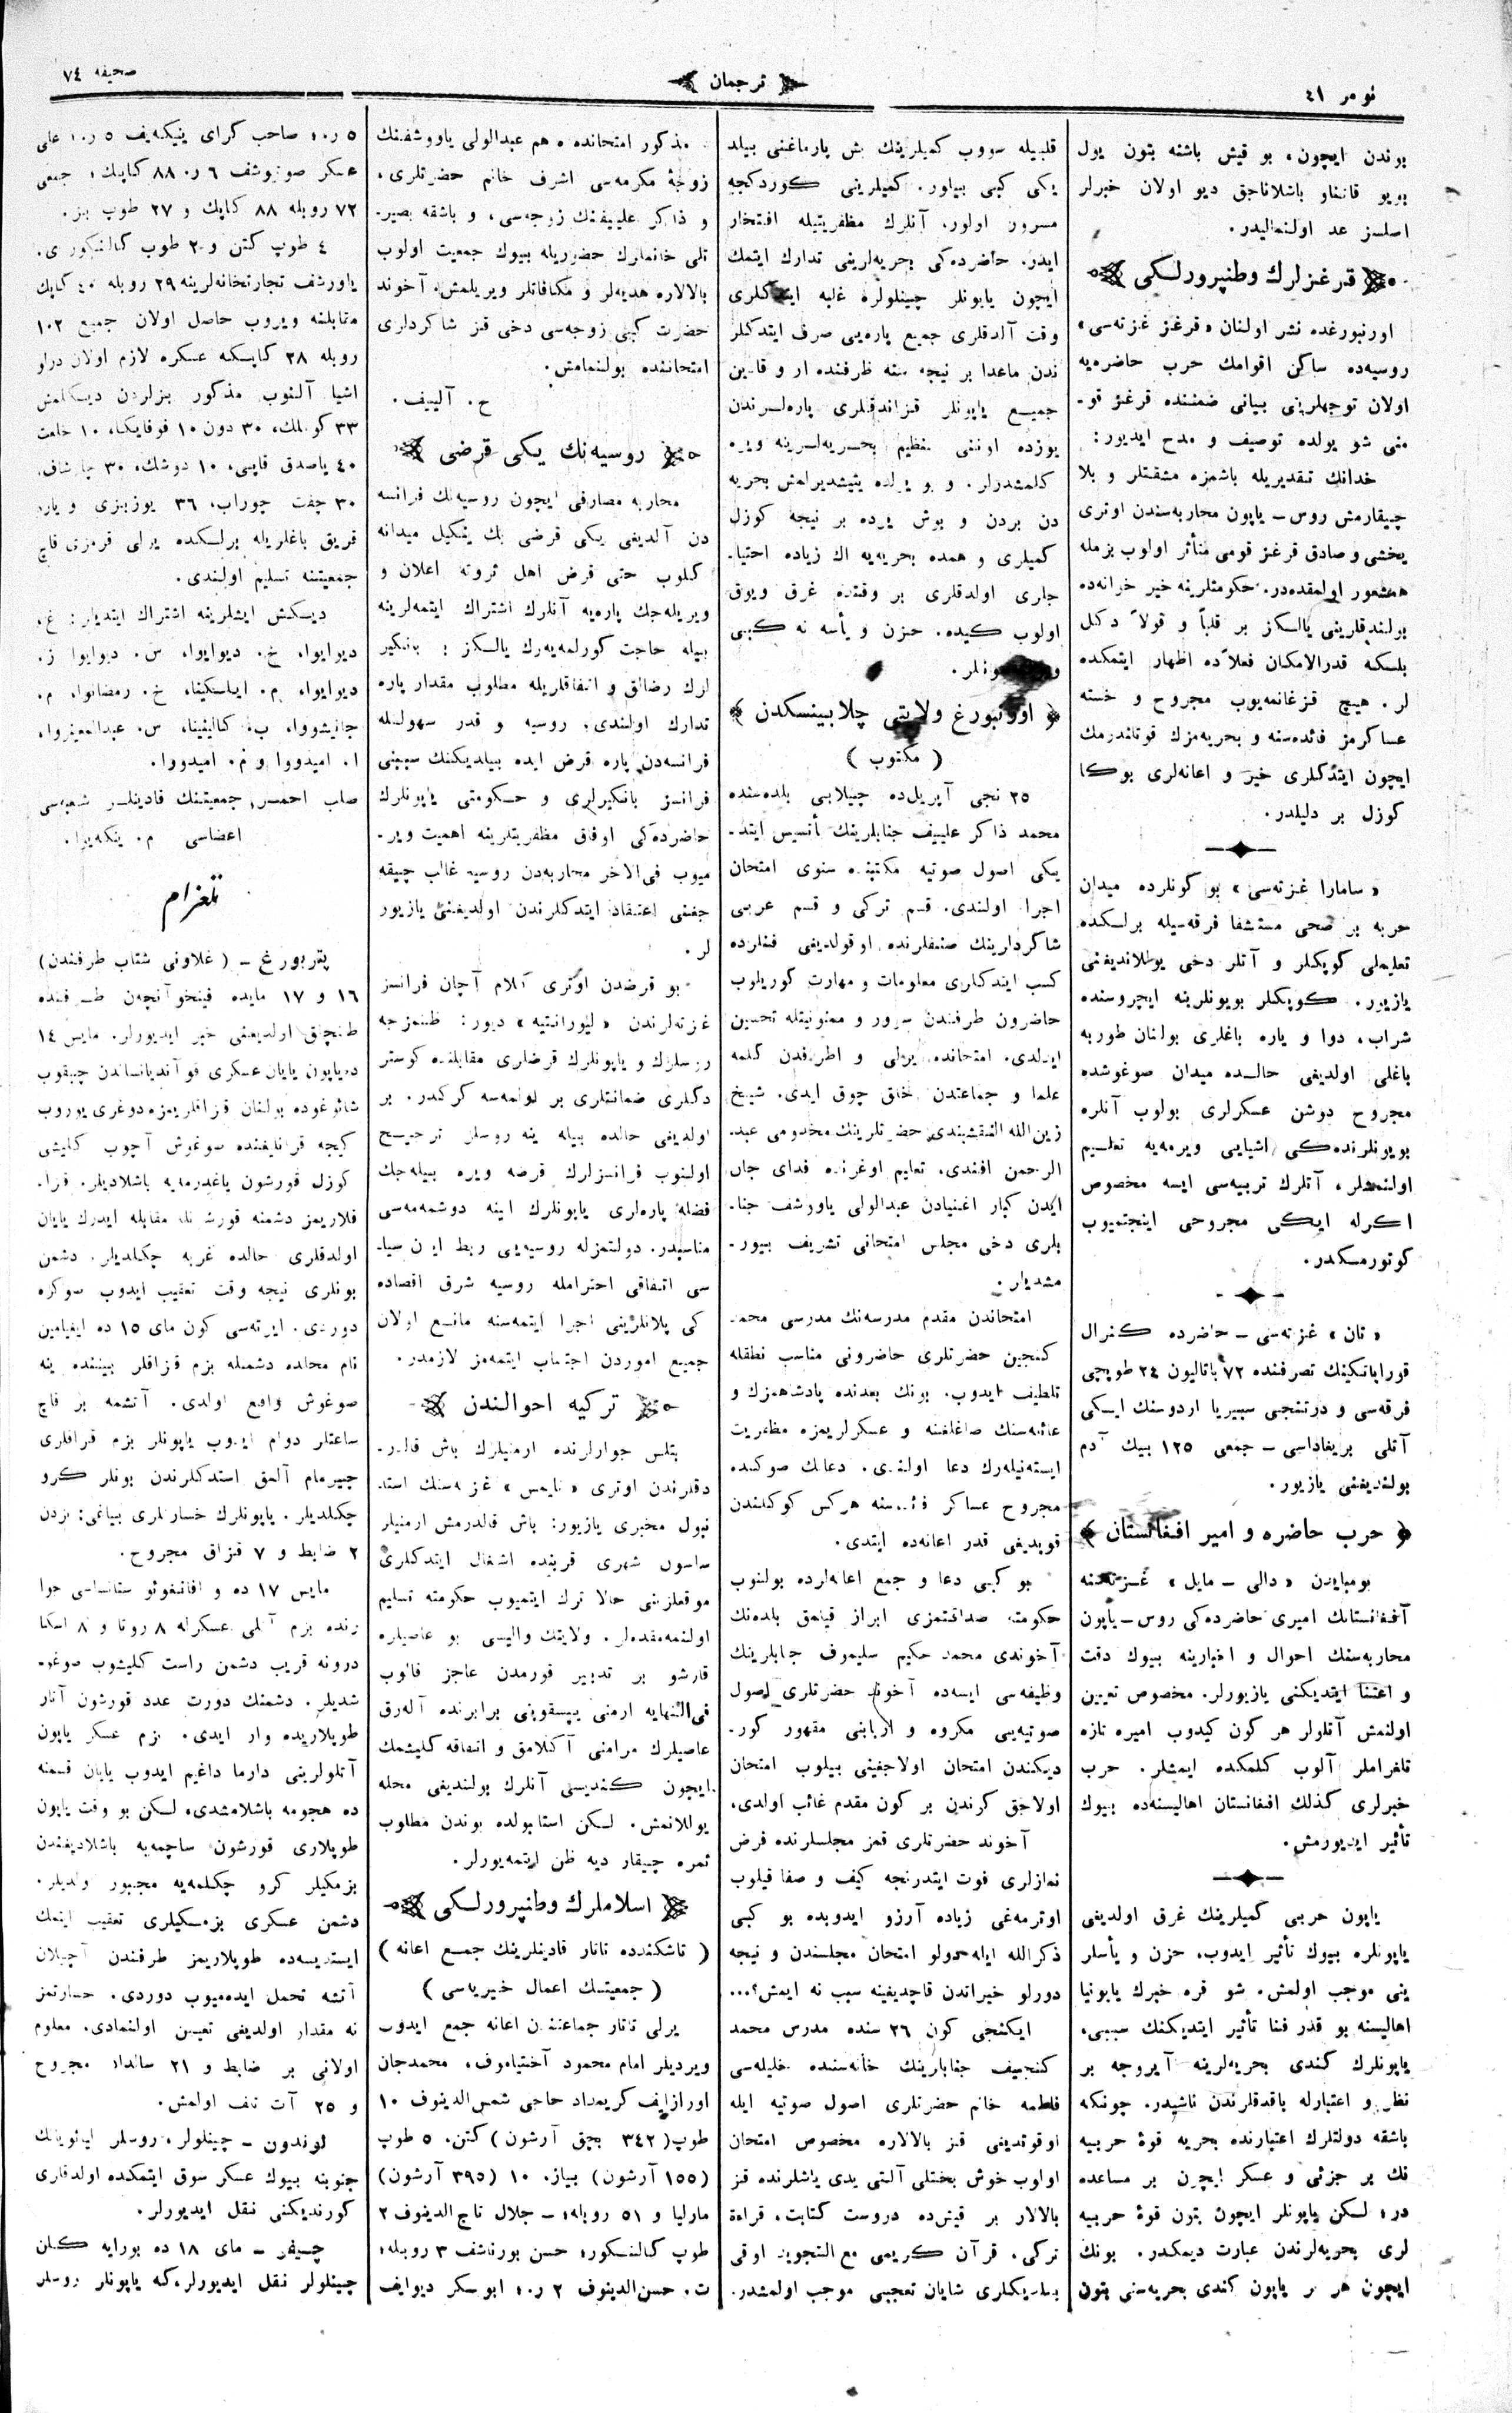 نومر ٤١
ترجمان
صحیفه ٧٤
بوندن ایچون، بو قیش باشنه بتون یول
بویو قانناو باشلاناجق دیو اولان خبرلر
اصلسز عد اولنمالیدر.
قرغزلرك وطنپرورلکی
اورنبورغده نشر اولنان «قرغز غزته‌سی»
روسیه‌ده ساکن اقوامك حرب حاضره‌یه
اولان توجهلرینی بیانی ضمننده قرغز قو-
منی شو یولده توصیف و مدح ایدیور:
خدانك تقدیریله باشمزه مشقتلر و بلا
چیقارمش روس – یاپون محاربه‌سندن اوتری
یخشی و صادق قرغز قومی متأثر اولوب بزمله
همشعور اولمقده‌در. حکومتلرینه خیر خوانه‌ده
بولندقلرینی یالکز بر قلباً و قولاً دکل
بلکه قدرالامکان فعلاً ده اظهار ایتمکده
لر. هیچ قزغانمه‌یوب مجروح و خسته
عساکرمز فائده‌سنه و بحریه‌مزك قوتاندرمك
ایچون ایتدکلری خیر و اعانه‌لری بوکا
کوزل بر دلیلدر.
«سامارا غزته‌سی» بو کونلرده میدان
حربه بر صحی مستشفا فرقه‌سیله برلکده
تعلیملی کوپکلر و آتلر دخی یوللاندیغنی
یازیور. کوپکلر بویونلرینه ایچروسنده
شراب، دوا و یاره باغلری بولنان طوربه
باغلی اولدیغی حالده میدان صوغوشده
مجروح دوشن عسکرلری بولوب آنلره
بویونلرنده‌کی اشیایی ویرمه‌یه تعلیم
اولنمشلر، آتلرك تربیه‌سی ایسه مخصوص
اکرله ایکی مجروحی اینجتمیوب
کوتورمکدر.
«تان» غزته‌سی – حاضرده کنرال
قوراپاتکینك تصرفنده ٧٢ باتالیون ٢٤ طوپچی
فرقه‌سی و دردنجی سیبیریا اردوسنك ایکی
آتلی بریغاداسی – جمعی ١٢٥ بیك آدم
بولندیغنی یازیور.
حرب حاضره و امیر افغانستان
بومبایدن «دالی – مایل» غزته‌سنه
آفغانستانك امیری حاضرده‌کی روس – یاپون
محاربه‌سنك احوال و اخبارینه بیوك دقت
و اعتنا ایتدیکنی یازیورلر. مخصوص تعیین
اولنمش آتلولر هر کون کیدوب امیره تازه
تلغراملر آلوب کلمکده ایمشلر. حرب
خبرلری کذلك افغانستان اهالیسنه‌ده بیوك
تأثیر ایدیورمش.
یاپون حربی کمیلرینك غرق اولدیغی
یاپونلره بیوك تأثیر ایدوب، حزن و یأسلر
ینی موجب اولمش. شو قره خبرك یاپونیا
اهالیسنه بو قدر فنا تأثیر ایتدیکنك سببی،
یاپونلرك کندی بحریه‌لرینه آیروجه بر
نظر و اعتبارله باقدقلرندن ناشیدر. چونکه
باشقه دولتلرك اعتبارنده بحریه قوۀ حربیه
نك بر جزئی و عسکر ایچون بر مساعده
در؛ لکن یاپونلر ایچون بتون قوۀ حربیه
لری بحریه‌لرندن عبارت دیمکدر. بونك
ایچون هر بر یاپون کندی بحریه‌سنی بتون
قلبیله سووب کمیلرینك بش پارماغنی بیلد
یکی کبی بیلور. کمیلرینی کوردکجه
مسرور اولور، آنلرك مظفریتیله افتخار
ایدر. حاضرده‌کی بحریه‌لرینی تدارك ایتمك
ایچون یاپونلر چینلولره غلبه ایتدکلری
وقت آلدقلری جمیع پاره‌یی صرف ایتدکلر
ندن ماعدا بر نیجه سنه ظرفنده ار و قادین
جمیع یاپونلر قزاندقلری پاره‌لرندن
یوزده اوننی تنظیم بحریه‌لرینه ویره
کلمشدرلر. و بو یولده یتیشدیرلمش بحریه
دن بردن و بوش یرده بر نیجه کوزل
کمیلری و همده بحریه‌یه اك زیاده احتیا-
جاری اولدقلری بر وقتده غرق و یوق
اولوب کیده. حزن و یأسه نه کبی
اورنبورغ ولایتی چلابینسکدن
(مکتوب)
٢٥ نجی آپریل‌ده چیلابی بلده‌سنده
محمد ذاکر علییف جنابلرینك تأسیس ایتد-
یکی اصول صوتیه مکتبنده سنوی امتحان
اجرا اولندی. قسم ترکی و قسم عربی
شاکردارینك صنفلرنده اوقولدیغی فنلرده
کسب ایتدکلری معلومات و مهارت کوریلوب
حاضرون طرفندن سرور و ممنونیتله تحسین
ایدلدی. امتحانده یرلی و اطرافدن کلمه
علما و جماعتدن خلق چوق ایدی. شیخ
زین‌الله النقشبندی حضرتلرینك مخدومی عبد-
الرحمن افندی، تعلیم اوغرنده فدای جان
ایدن کبار اغنیادن عبدالولی یاوشف جنا-
بلری دخی مجلس امتحانی تشریف بیور-
مشدیلر.
امتحاندن مقدم مدرسه‌نك مدرسی محمد
کنجین حضرتلری حاضرونی مناسب نطقله
تلطیف ایدوب، بونك بعدنده پادشاهمزك و
عائله‌سنك صاغلغنه و عسکرلریمزه مظفریت
ایسته‌نیله‌رك دعا اولندی. دعانك صوکنده
مجروح عساکر فائده‌سنه هرکس کوکلندن
قوپدیغی قدر اعانه‌ده ایتدی.
بو کبی دعا و جمع اعانه‌لرده بولنوب
حکومته صداقتمزی ابراز قیلمق بلده‌نك
آخوندی محمد حکیم سلیموف جنابلرینك
وظیفه‌سی ایسه‌ده آخوند حضرتلری اصول
صوتیه‌یی مکروه و اربابنی مقهور کور-
دیکندن امتحان اولاجغینی بیلوب امتحان
اولاجق کوندن بر کون مقدم غائب اولدی.
آخوند حضرتلری قمز مجلسلرنده فرض
نمازلری فوت ایتدرنجه کیف و صفا قیلوب
اوترمه‌غی زیاده آرزو ایدوبده بو کبی
ذکرالله ایله مملو امتحان مجلسندن و نیجه
دورلو خیراتدن قاچدیغینه سبب نه ایمش؟...
ایکنجی کون ٢٦ سنده مدرس محمد
کنجیف جنابارینك خانه‌سنده خلیله‌سی
فاطمه خانم حضرتلری اصول صوتیه ایله
اوقوتدیغی قز بالالاره مخصوص امتحان
اولوب خوش بختلی آلتی یدی یاشلرنده قز
بالالار بر قیش‌ده دروست کتابت، قراءة
ترکی، قرآن کریمی مع التجوید اوقی
بیلدیکلری شایان تعجبی موجب اولمشدر.
مذکور امتحانده‌ده هم عبدالولی یاووشفنك
زوجۀ مکرمه‌سی اشرف خانم حضرتلری،
و ذاکر علییفنك زوجه‌سی، و باشقه بصیر-
تلی خانملرك حضوریله بیوك جمعیت اولوب
بالالاره هدیه‌لر و مکافاتلر ویریلمش. آخوند
حضرت کبی زوجه‌سی دخی قز شاکردلری
امتحاننده بولنمامش.
ح. آلییف.
روسیه‌نك یکی قرضی
محاربه مصارفی ایچون روسیه‌نك فرانسه
دن آلدیغی یکی قرضی پك یتکیل میدانه
کلوب حتی قرض اهل ثروته اعلان و
ویریله‌جك پاره‌یه آنلرك اشتراك ایتمه‌لرینه
بیله حاجت کورلمه‌یه‌رك یالکز بانکیر
لرك رضالق و اتفاقلریله مطلوب مقدار پاره
تدارك اولندی. روسیه و قدر سهولتله
فرانسه‌دن پاره قرض ایده بیلدیکنك سببنی
فرانسز بانکیرلری و حکومتی یاپونلرك
حاضرده‌کی اوفاق مظفریتلرینه اهمیت ویر-
میوب فی‌الاخر محاربه‌دن روسیه غالب چیقه
جغنی اعتقاد ایتدکلرندن اولدیغنی یازیور
لر.
بو قرضدن اوتری کلام آچان فرانسز
غزته‌لرندن «لیورانتیه» دیور: ظنمزجه
روسلرك و یاپونلرك قرضلری مقابلنده کوستر
دکلری ضمانتلری بر اولنمه‌سه کرکدر. بر
اولدیغی حالده بیله ینه روسلر ترجیح
اولنوب فرانسزلرك قرضه ویره بیله‌جك
فضله پاره‌لری یاپونلرك الینه دوشمه‌مه‌سی
مناسبدر. دولتمزله روسیه‌یی ربط ایدن سیا-
سی اتفاقی احترامله روسیه شرق اقصاده
کی پلانلرینی اجرا ایتمه‌سنه مانع اولان
جمیع اموردن اجتناب ایتمه‌مز لازمدر.
ترکیه احوالندن
بتلس جوارلرنده ارمنیلرك باش قالدر-
دقلرندن اوتری «تایمس» غزته‌سنك استا-
نبول مخبری یازیور: باش قالدرمش ارمنیلر
ساسون شهری قربنده اشغال ایتدکلری
موقعلرینی حالا ترك ایتمیوب حکومته تسلیم
اولنمه‌مقده‌لر. ولایتك والیسی بو عاصیلره
قارشو بر تدبیر قورمدن عاجز قالوب
فی‌النهایه ارمنی یپسقوپنی برابرنده آله‌رق
عاصیلرك مرامنی آکلامق و اتفاقه کلیشمك
ایچون کندیسی آنلرك بولندیغی محله
یوللانمش. لکن استانبولده بوندن مطلوب
ثمره چیقار دیه ظن ایتمه‌یورلر.
اسلاملرك وطنپرورلکی
(تاشکندده تاتار قادینلرینك جمع اعانه)
(جمعیتنك اعمال خیریه‌سی)
یرلی تاتار جماعتندن اعانه جمع ایدوب
ویردیلر امام محمود آختیاموف، محمدجان
اورازایف کریمداد حاجی شمس‌الدینوف ١٠
طوپ (٣٤٢ بچق آرشون) کتن، ٥ طوپ
(١٥٥ آرشون) بیاز، ١٠ (٣٩٥ آرشون)
مارلیا و ٥١ روبله؛ – جلال تاج‌الدینوف ٢
طوپ کالنکور؛ حسن بورناشف ٣ روبله؛
ت. حسن‌الدینوف ٢ ر.؛ ابو سکر دیوایف
٥ ر.؛ صاحب کرای ینیکه‌یف ٥ ر.؛ علی
عسکر صونوشف ٦ ر. ٨٨ کاپك، جمعی
٧٢ روبله ٨٨ کاپك و ٢٧ طوپ بز.
٤ طوپ کتن و ٢ طوب کالنکوری.
یاورشف تجارتخانه‌لرینه ٢٩ روبله ٤٠ کاپك
مقابلنه ویروب حاصل اولان جمیع ١٠٢
روبله ٢٨ کاپکه عسکره لازم اولان درلو
اشیا آلنوب مذکور بزلردن دیکلمش
٣٣ کوملك، ٣٠ دون ١٠ فوفایکا، ١٠ خلعت
٤٠ یاصدق قاپی، ١٠ دوشك، ٣٠ چارشاف،
٣٠ جفت چوراب، ٣٦ یوزبزی و یاره
قریق باغلریله برلکده یرلی قرمزی قاچ
جمعیتنه تسلیم اولندی.
دیکش ایشلرینه اشتراك ایتدیلر: غ.
دیوایوا، خ. دیوایوا، س. دیوایوا ز.
دیوایوا، م. ایناسکیفا، خ. رمضانوا، م.
جانیشووا، ب. کالینینا، س. عبدالعزیزوا،
ا. امیدووا و م. امیدووا.
صلب احمر جمعیتنك قادینلر شعبه‌سی
اعضاسی م. ینکه‌یوا.
تلغرام
پتربورغ – (غلاونی شتاب طرفندن)
١٦ و ١٧ مایده فینخوآنچه‌ن طرفنده
طنچلق اولدیغنی خبر ایدیورلر. مایس ١٤
ده یاپون یایان عسکری قوآندیانساندن چیقوب
شائوغوده بولنان قزاقلریمزه دوغری یوروب
کیجه قرانلیغنده صوغوش آچوب کلیشی
کوزل قورشون یاغدرمه‌یه باشلادیلر. قزا-
قلاریمز دشمنه قورشونله مقابله ایدرك یایان
اولدقلری حالده غربه چکلدیلر. دشمن
بونلری نیجه وقت تعقیب ایدوب صوکره
دوردی. ایرته‌سی کون مای ١٥ ده ایغیامین
نام محلده دشمنله بزم قزاقلر بیننده ینه
صوغوش واقع اولدی. آتشمه بر قاچ
ساعتلر دوام ایدوب یاپونلر بزم قزاقلری
چیرمام آلمق استدکلرندن بونلر کرو
چکلدیلر. یاپونلرك خسارتلری بیانمی؛ بزدن
٢ ضابط و ٧ قزاق مجروح.
مایس ١٧ ده و افانغوثو ستانسیاسی جوا
رنده بزم آتلی عسکرله ٨ روتا و ٨ اسکا
درونه قریب دشمن راست کلیشوب صوغو-
شدیلر. دشمنك دورت عدد قورشون آتار
طوپلاریده وار ایدی. بزم عسکر یاپون
آتلولرینی دارما داغیم ایدوب یایان قسمنه
ده هجومه باشلامشدی، لکن بو وقت یاپون
طوپلاری قورشون ساچمه‌یه باشلادیغندن
بزمکیلر کرو چکلمه‌یه مجبور اولدیلر.
دشمن عسکری بزمکیلری تعقیب ایتمك
ایستدیسه‌ده طوپلاریمز طرفندن آچیلان
آتشه تحمل ایده‌میوب دوردی. خسارتمز
نه مقدار اولدیغی تعیین اولنمادی. معلوم
اولانی بر ضابط و ٢١ سالدات مجروح
و ٢٥ آت تلف اولمش.
لوندون – چینلولر، روسلر لیائویانك
جنوبنه بیوك عسکر سوق ایتمکده اولدقلری
کورندیکنی نقل ایدیورلر.
چیفو – مای ١٨ ده بورایه کلن
چینلولر نقل ایدیورلرکه یاپونلر روسلر